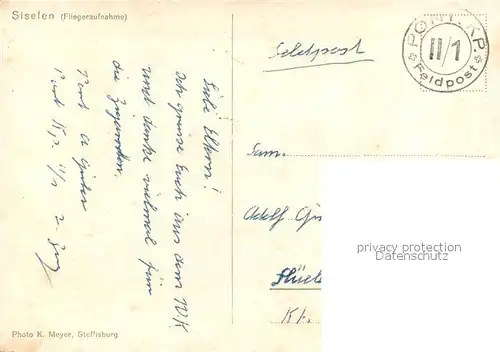 Siselen (Fliegeraufnahme)
Liebe Eltern!
Ich grüsse Euch aus dem W.K.
und danke vielmal für
die Zigaretten.
Kp. II/1 2. Zug
Photo K. Meyer, Steffisburg
Feldpost
PONT. KP.
II/1
Feldpost
Fam.
Adolf
Kt.
privacy protection
Datenschutz